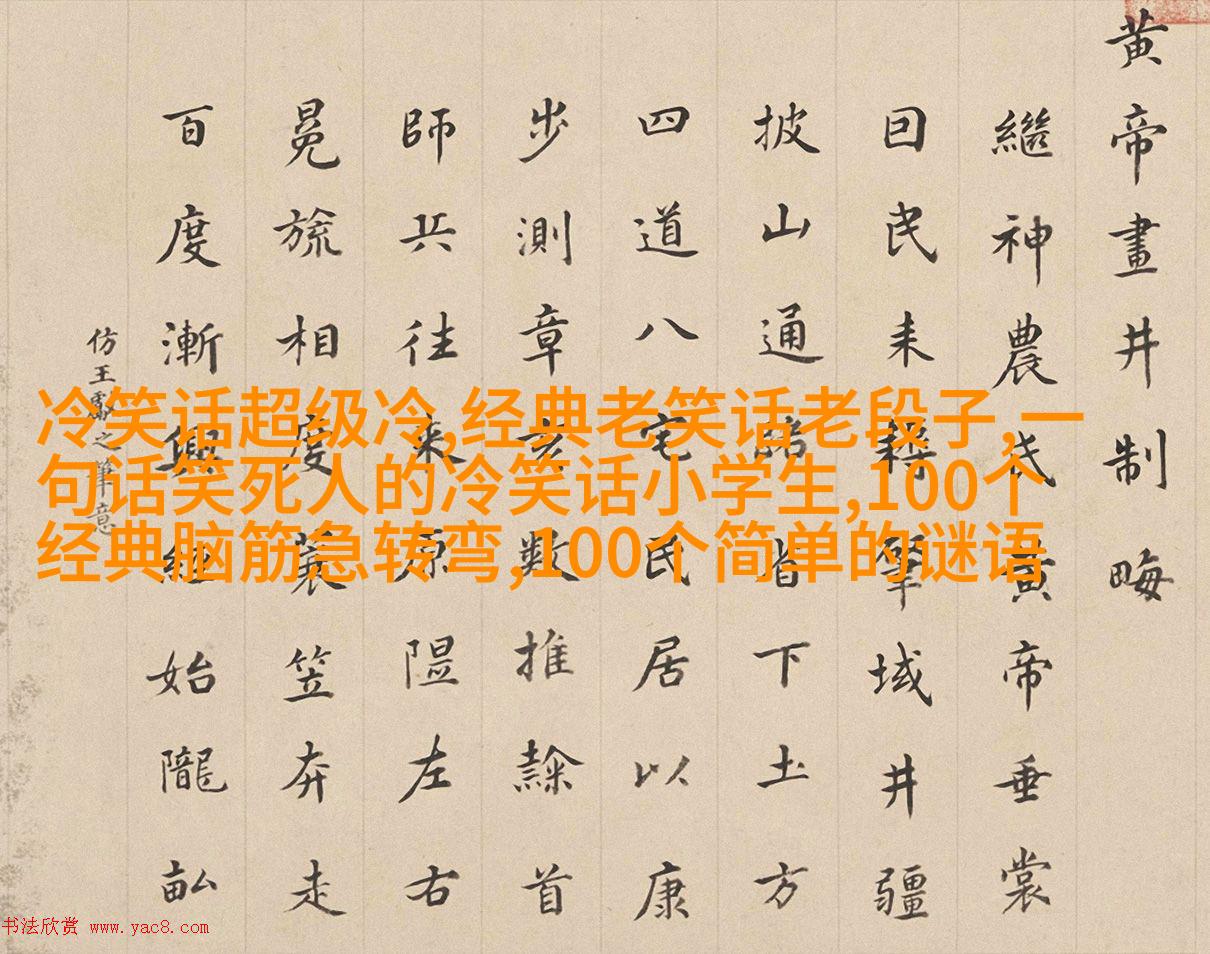 黄帝畫井制畮
繼神農氏黄帝垂裳
囙民耒耨肇域井疆
披山通路皆下土方
四道八宅民居以康
步測章亥數推隸首
師兵往來原隰左右
冕旒相度蓑笠奔走
百度漸興經始隴畝
仿王獻之筆意
冷笑话超级冷,经典老笑话老段子,一
句话笑死人的冷笑话小学生,100个
经典脑筋急转弯,100个简单的谜语
书法欣赏 www.yac8.com